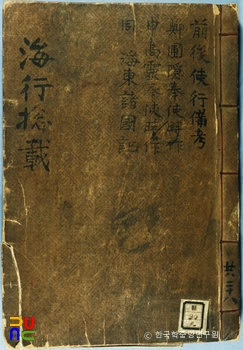 前後使行備考
鄭圃隱奉使時作
申高靈奉使時作
同 海東諸國記
海行摠載
共二十八
한국학중앙연구원